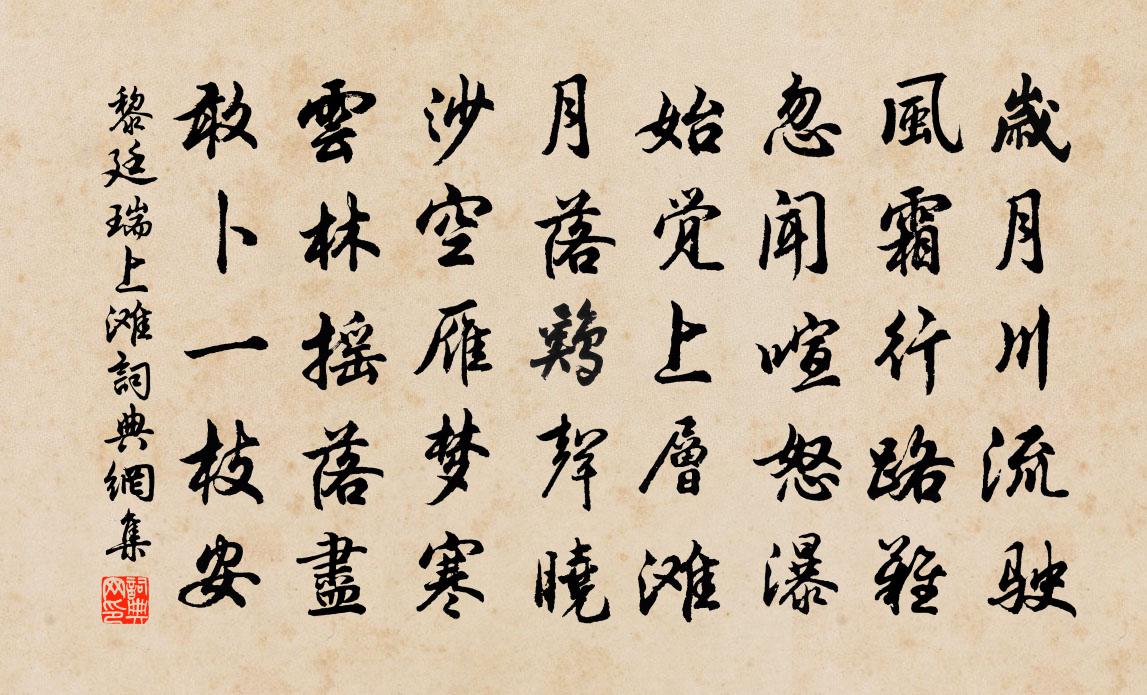 歲月川流駛
風霜行路難
忽聞喧怒瀑
始觉上層滩
月落鷄聲曉
沙空雁梦寒
雲林摇落盡
敢卜一枝安
黎廷瑞上滩詞典網集
詞典网印